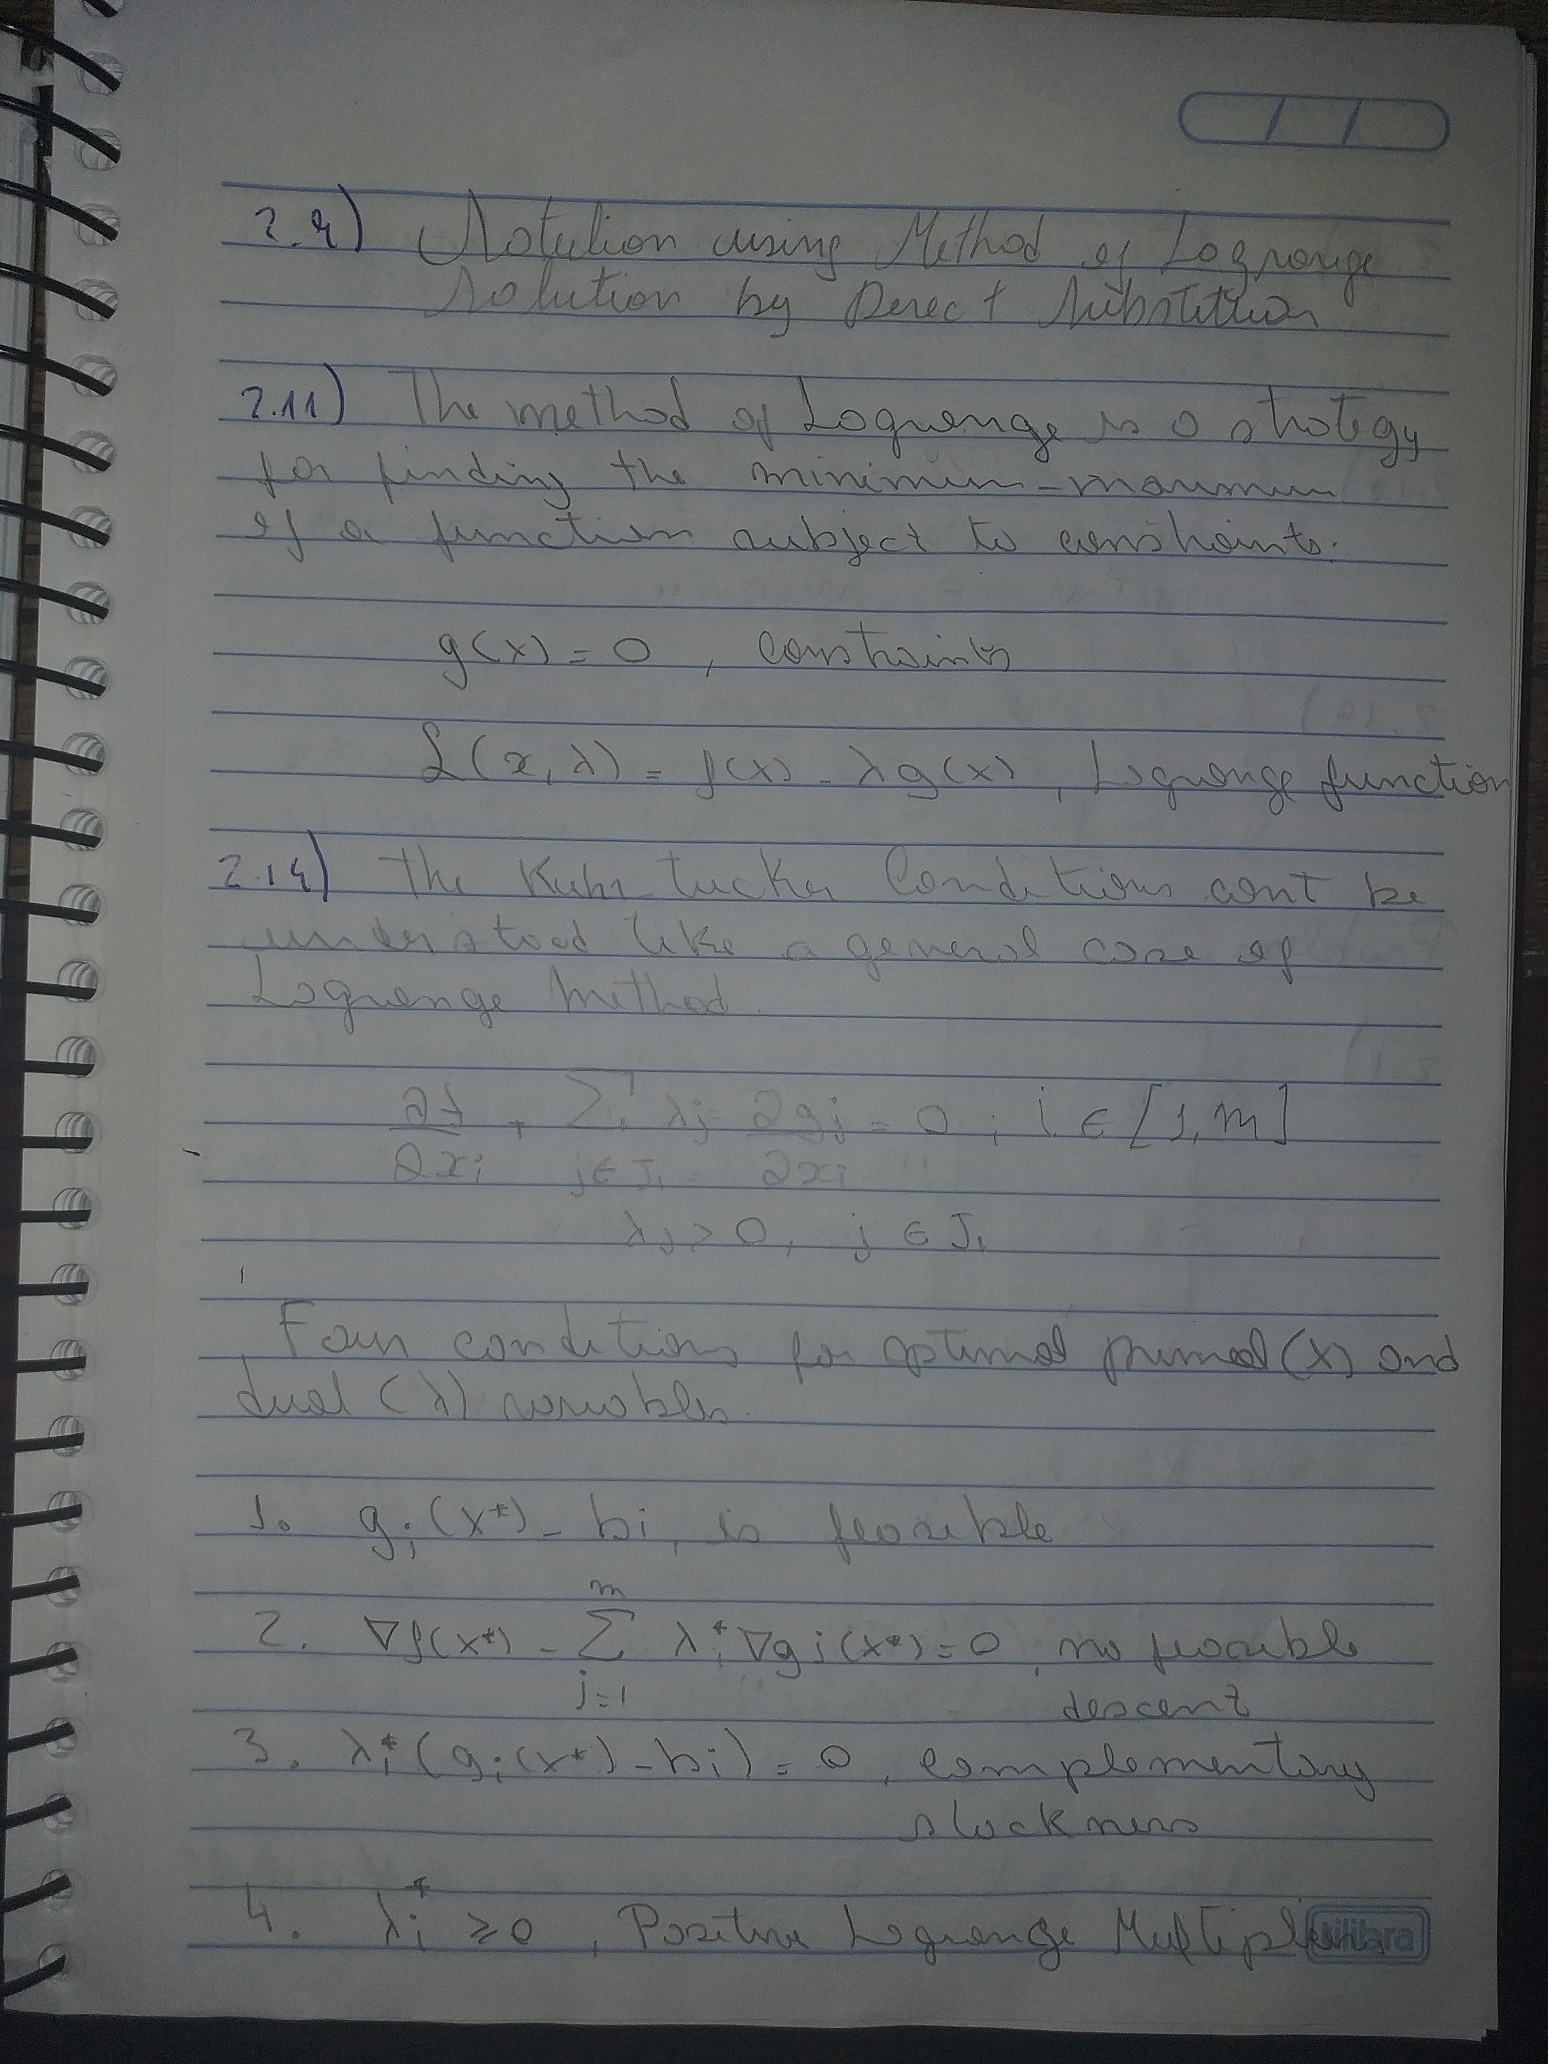 2.9) Solution using Method of Lagrange
Solution by Direct Substitution
2.11) The method of Lagrange is a strategy
for finding the minimum-maximum
of a function subject to constraints.
g(x) = 0 , constraints
L(x, λ) = f(x) - λ g(x) , Lagrange function
2.14) The Kuhn-Tucker Conditions can't be
understood like a general case of
Lagrange Method.
∂f/∂xi + Σ j∈J1 λj ∂gj/∂xi = 0 , i ∈ [1, m]
λj > 0, j ∈ J1
Four conditions for optimal primal (x) and
dual (λ) variables.
1. gi(x*) - bi, is feasible
2. ∇f(x*) - Σ j=1 m λi* ∇gi(x*) = 0 , no feasible
descent
3. λi* (gi(x*) - bi) = 0 , complementary
slackness
4. λi* ≥ 0 , Positive Lagrange Multipliers
tilibra